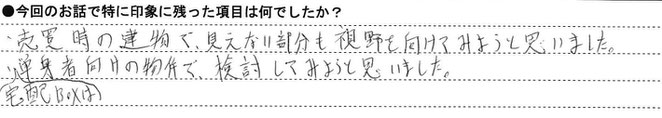 ●今回のお話で特に印象に残った項目は何でしたか？
・売買時の建物で、見えない部分も視野を向けてみようと思いました。
・単身者向けの物件で、検討してみようと思いました。
宅配BOXは